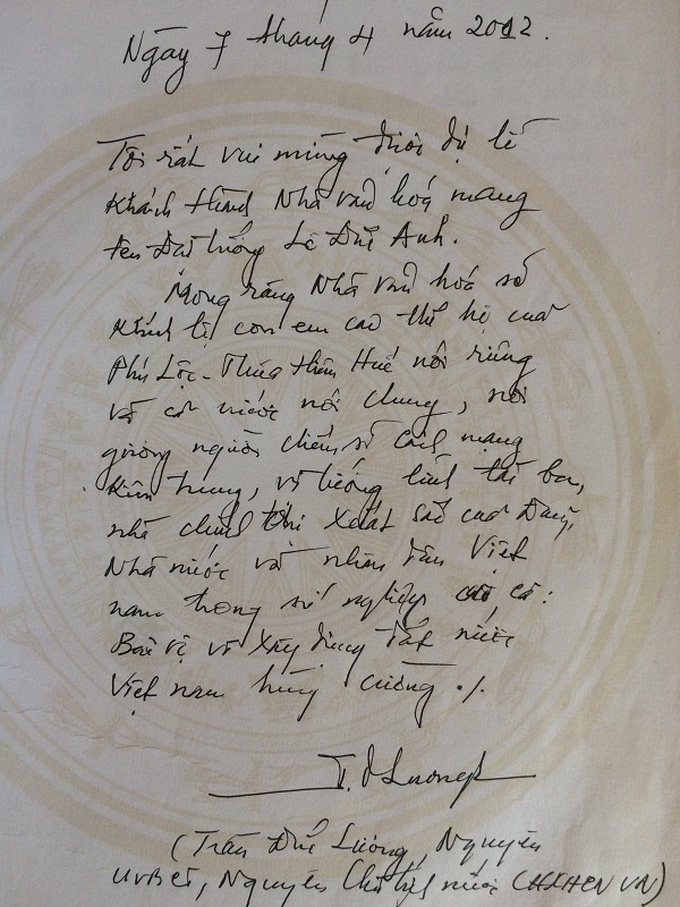 Ngày 7 tháng 4 năm 2012.
Tôi rất vui mừng được dự lễ
Khánh thành Nhà văn hoá mang
tên Đại tướng Lê Đức Anh.
Mong rằng Nhà văn hoá sẽ
khích lệ con em các thế hệ của
Phú Lộc - Thừa Thiên Huế nói riêng
và cả nước nói chung, noi
gương người chiến sĩ cách mạng
kiên trung, vị tướng lĩnh tài ba,
nhà chính trị xuất sắc của Đảng,
Nhà nước và nhân dân Việt
nam trong sự nghiệp cao cả:
Bảo vệ và Xây dựng Đất nước
Việt nam hùng cường ./.
T.Đ Lương
(Trần Đức Lương, Nguyên
UVBCT, Nguyên Chủ tịch nước CHXHCN VN)